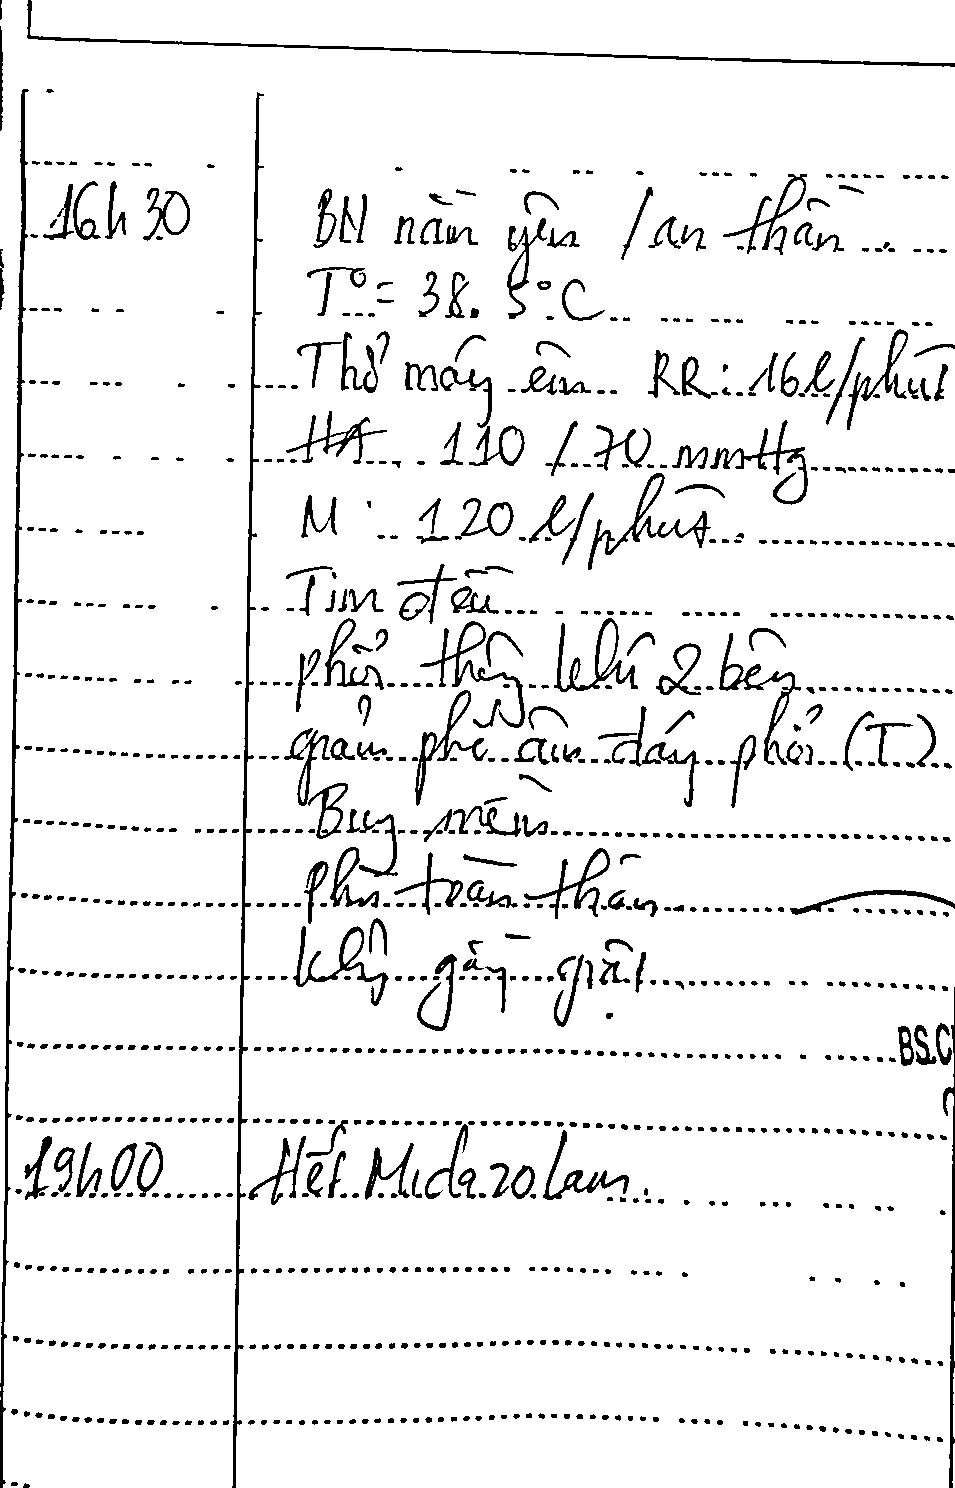 16h30 BN nằm yên / an thần
T° = 38.5°C
Thở máy êm RR: 16l/phút
HA 110/70 mmHg
M: 120 l/phút
Tim đều
phổi thông khí 2 bên
giảm phế âm đáy phổi (T)
Bụng mềm
phù toàn thân
không gồng giật
BS.C
19h00 Hết Midazolam